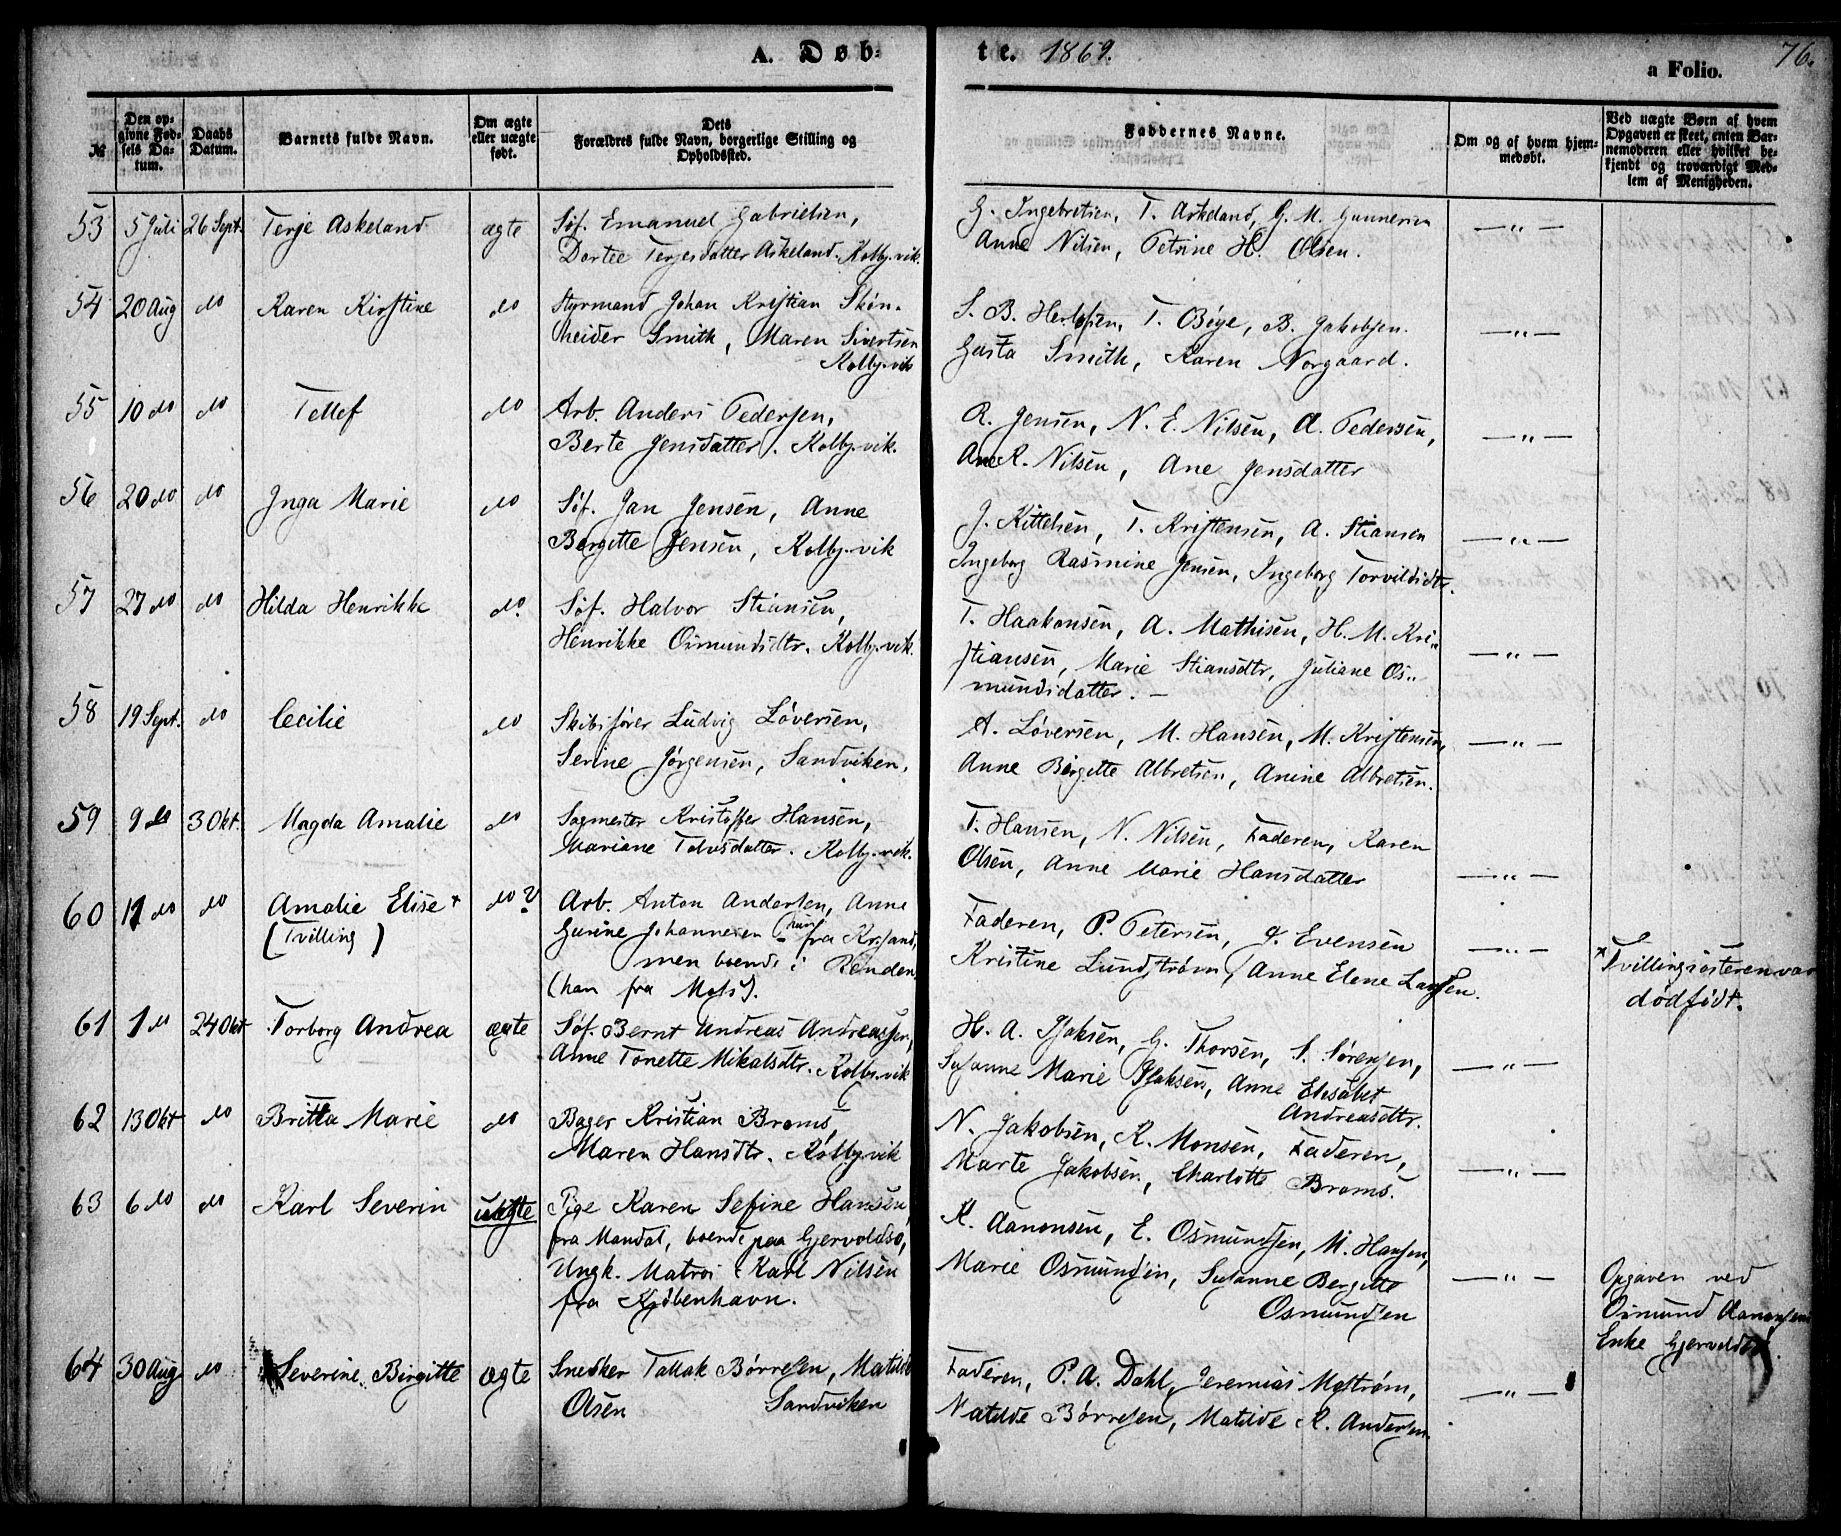 A. Døb-
te. 1869.
a Folio.
76.
№
Den op-
givne Fød-
sels Da-
tum.
Daabs
Datum.
Barnets fulde Navn.
Om ægte
eller uægte
født.
Dets
Forældres fulde Navn, borgerlige Stilling og
Opholdssted.
Faddernes Navne.
Om og af hvem hjem-
medøbt.
Ved uægte Børn af hvem
Opgaven er skeet, enten Bar-
nemoderen eller hvilket be-
kjendt og troværdigt Med-
lem af Menigheden.
53 5 Juli 26 Sept. Terje Askeland ægte Søf. Emanuel Gabrielsen,
Dortee Terjesdatter Askeland. Kolbj.vik.
G. Ingebretsen, T. Askeland, G. M. Gunnersen
Anne Nilsen, Petrine H. Olsen.
— „ —
54 20 Aug do Karen Kirstine do Styrmand Johan Kristian Skøn-
heider Smith, Maren Sivertsen
Kolbj.vik
S. B. Herlofsen, T. Bøye, B. Jakobsen.
Gusta Smith, Karen Norgaard.
— „ —
55 10 do do Tellef do Arb. Anders Pedersen,
Berte Jensdatter. Kolbj.vik.
R. Jensen, N. E. Nilsen, A. Pedersen,
Ane R. Nilsen, Ane Jensdatter
— „ —
56 20 do do Inga Marie do Søf. Jan Jensen, Anne
Bergitte Jensen, Kolbj.vik
J. Kittelsen, T. Kristensen, A. Stiansen
Ingeborg Rasmine Jensen, Ingeborg Torvildsdtr.
— „ —
57 27 do do Hilda Henrikke do. Søf. Halvor Stiansen,
Henrikke Osmundsdtr. Kolbj.vik.
T. Haakonsen, A. Mathisen, H. M. Kri„
stiansen, Marie Stiansdtr, Juliane Os„
mundsdatter. —
— „ —
58 19 Sept. do Cecilie do Skibsfører Ludvig Løversen,
Serine Jørgensen, Sandviken.
A. Løversen, M. Hansen, M. Kristensen,
Anne Birgitte Albretsen, Anine Albretsen.
— „ —
59 9 do 3 Okt. Magda Amalie do Sagmester Kristoffer Hansen,
Mariane Tolvsdatter. Kolbj.vik.
T. Hansen, N. Nilsen, Faderen, Karen
Olsen, Anne Marie Hansdatter
— „ —
60 11 do do Amalie Elise + do ? Arb. Anton Andersen, Anne
(Tvilling)
Gurine Johannesen (hun fra Krsand,
men boende i Renden
(han fra Mols).
Faderen, P. Petersen, J. Evensen
Kristine Lundstrøm, Anne Elene Larsen.
— „ —
+ Tvillingsøsteren var
dødfødt.
61 1 do 24 Okt Torborg Andrea ægte Søf. Bernt Andreas Andreassen,
Anne Tonette Mikalsdtr. Kolbj.vik
H. A. Isaksen, G. Thorsen, S. Sørensen,
Susanne Marie Isaksen, Anne Elisabet
Andreasdtr.
— „ —
62 13 Okt do Britta Marie do Bager Kristian Broms,
Maren Hansdtr. Kolbj.vik
N. Jakobsen, K. Monsen, Faderen,
Marte Jakobsen, Charlotte Broms.
— „ —
63 6 do do Karl Severin uægte Pige Karen Sefine Hansen,
fra Mandal, boende paa Gjervoldsø,
Ungk. Matros Karl Nilsen
fra Kjøbenhavn.
K. Aanonsen, E. Osmundsen, M. Hansen,
Marie Osmundsen, Susanne Bergitte
Osmundsen
— „ —
Opgaven ved
Osmund Aanonsens
Enke Gjervoldsø.
64 30 Aug do Severine Birgitte ægte Snedker Tallak Børresen, Matilde
Olsen Sandviken
Faderen, P. A. Dahl, Jeremias Møstrøm,
Matilde Børresen, Matilde K. Andersen.
— „ —